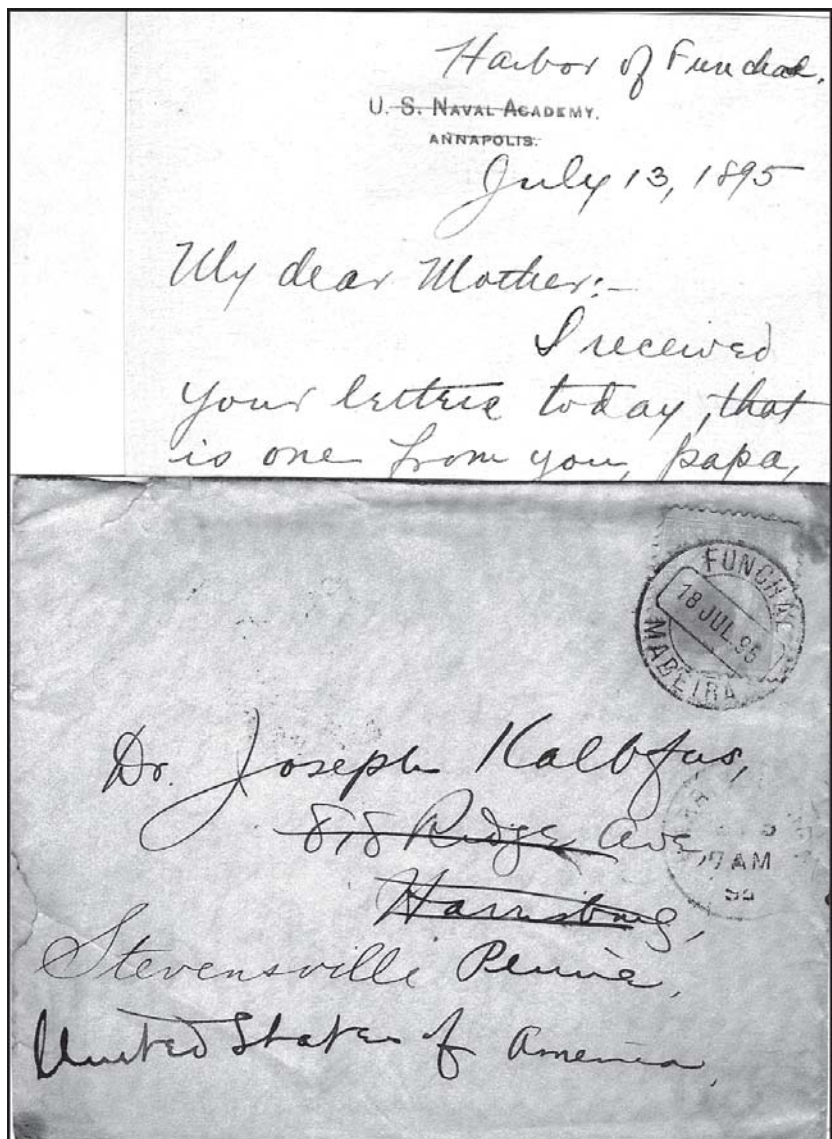 Harbor of Funchal.
U. S. NAVAL ACADEMY,
ANNAPOLIS.
July 13, 1895
My dear Mother:-
I received
your letters today, that
is one from you, papa,
FUNCHAL
18 JUL. 95
MADEIRA
Dr. Joseph Kalbfus,
818 Ridge Ave,
7 AM
95
Harrisburg,
Stevensville Penna,
United States of America,